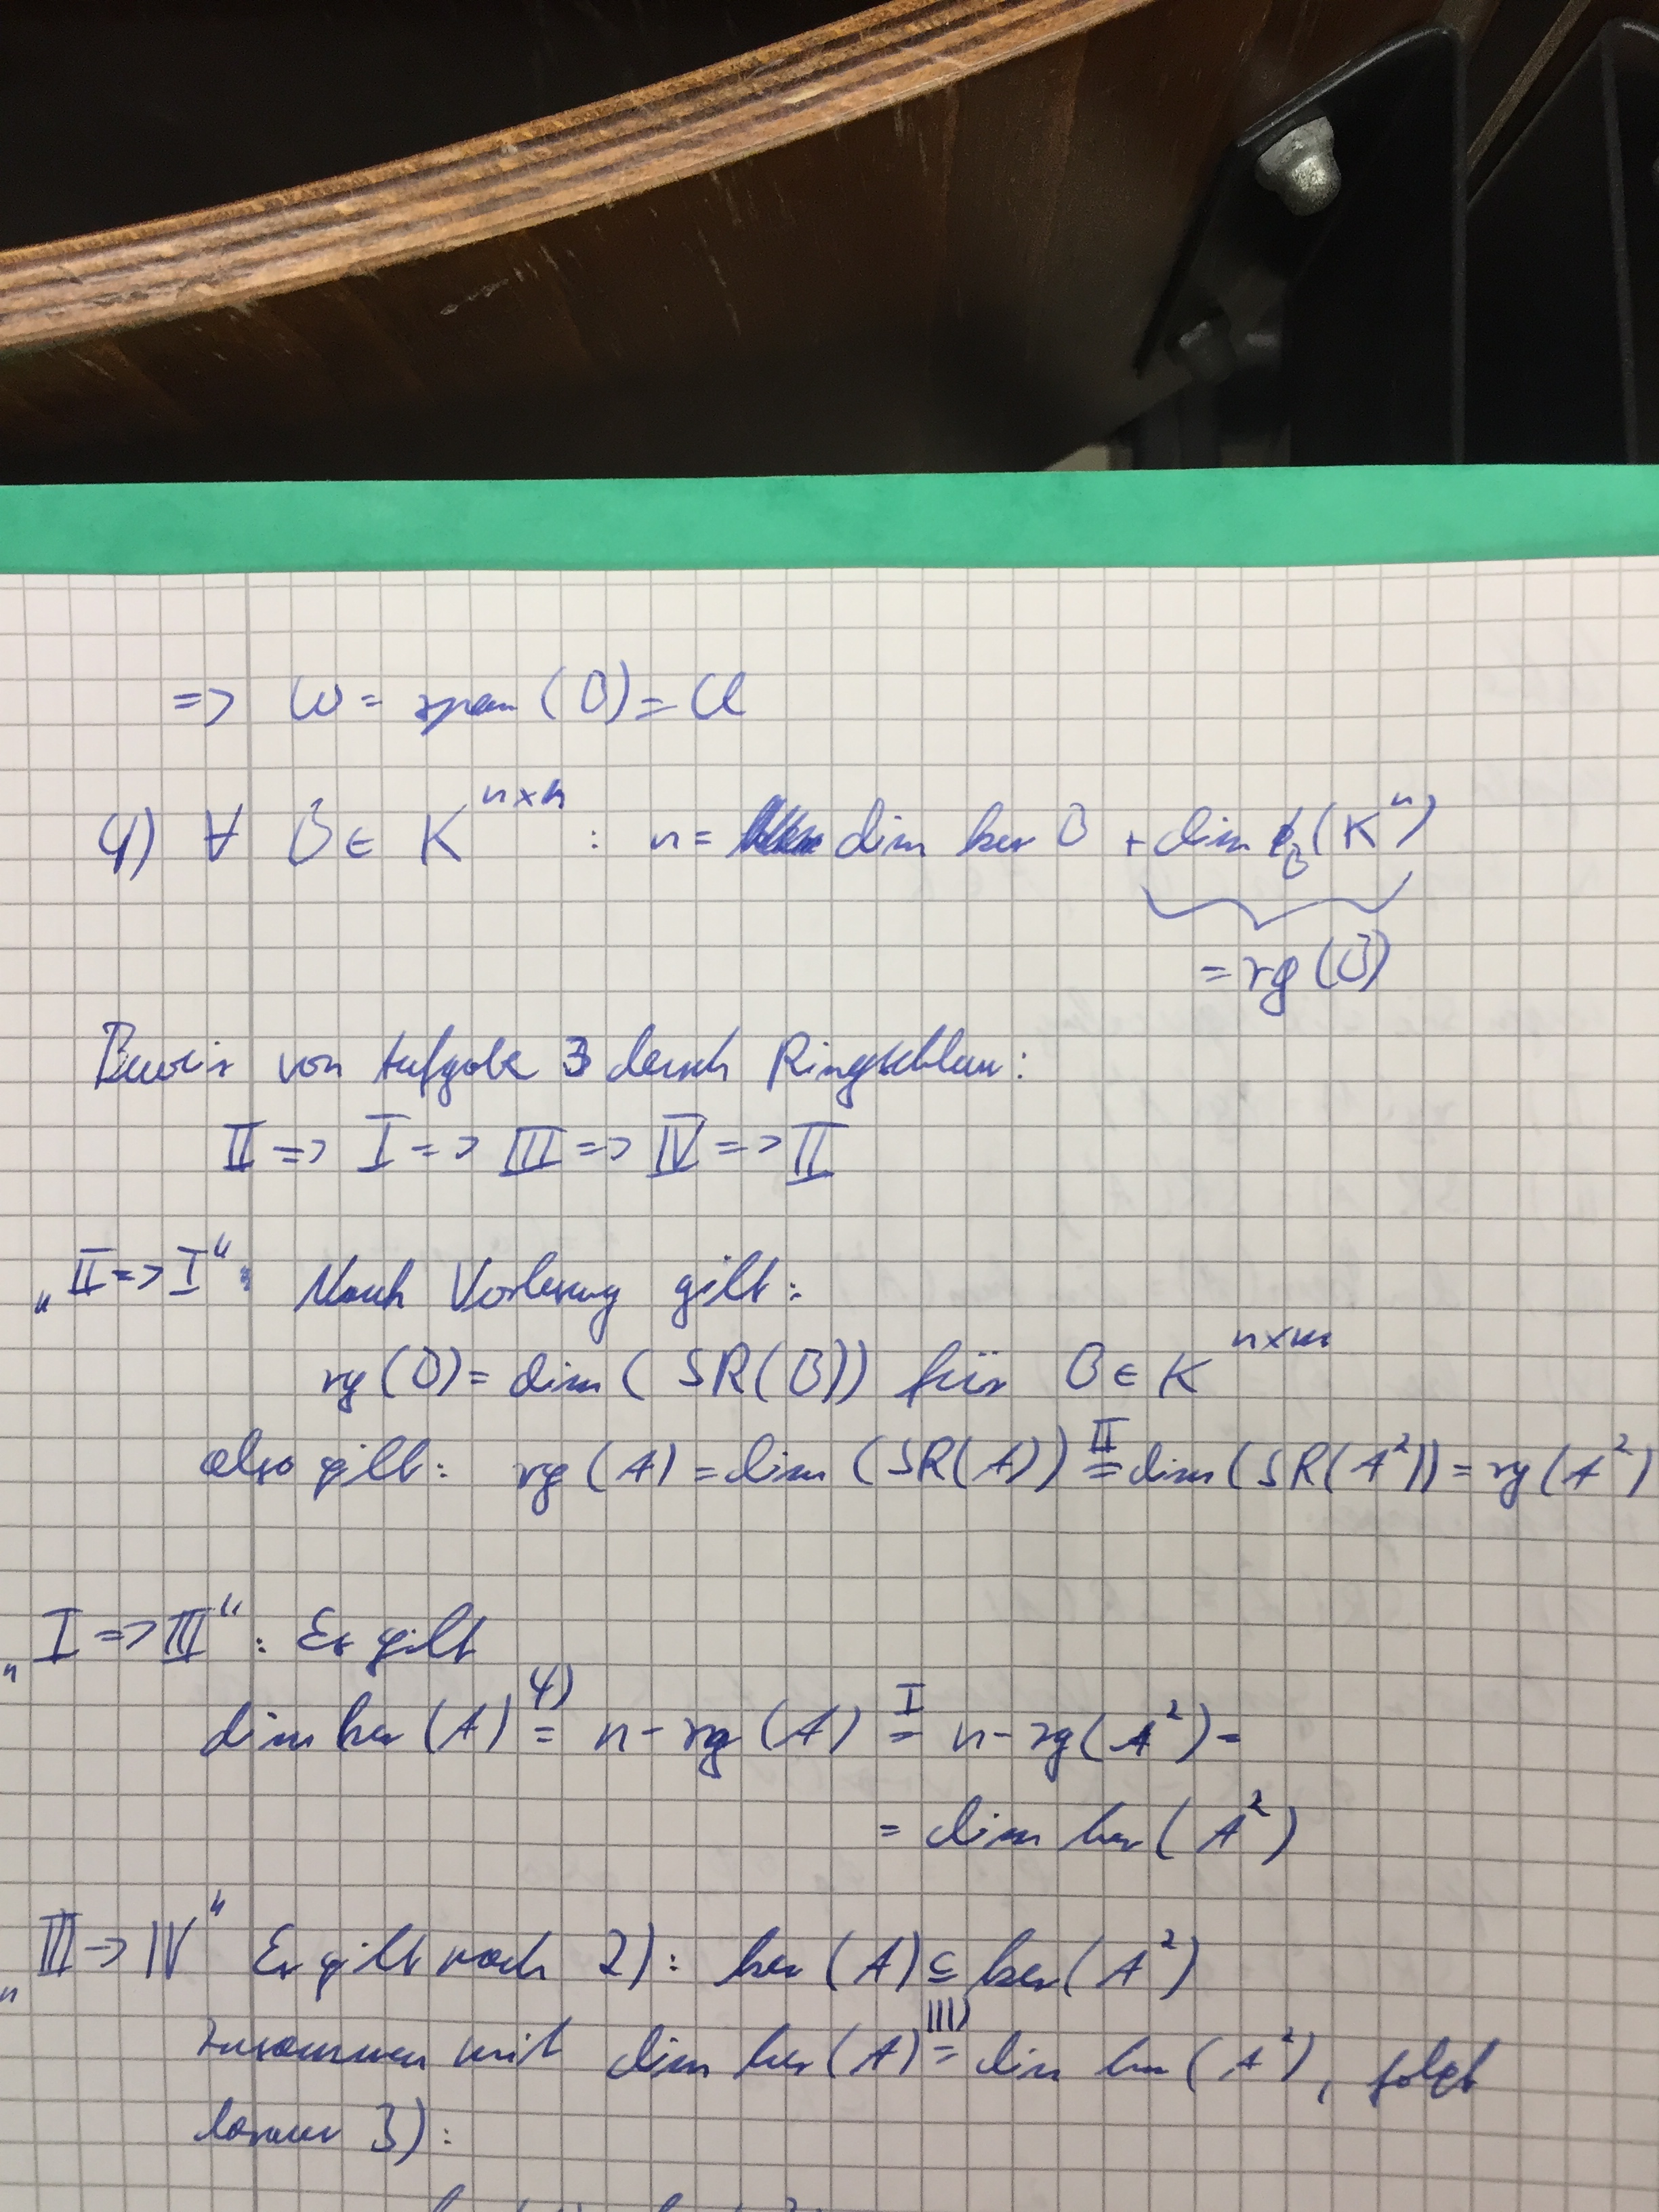 => W = span (B) = U
4) ∀ B ∈ K^{n×n} : n = dim ker B + dim f_B(K^n)
= rg (B)
Beweis von Aufgabe 3 durch Ringschluss:
II => I => III => IV => II
„II => I“: Nach Vorlesung gilt:
rg (B) = dim ( SR(B)) für B ∈ K^{n×m}
also gilt: rg (A) = dim (SR(A)) =^{II} dim (SR(A²)) = rg (A²)
„I => III“: Es gilt
dim ker (A) =^{4)} n - rg (A) =^{I} n - rg(A²) =
= dim ker (A²)
„III -> IV“ Es gilt nach 2): ker (A) ⊆ ker (A²)
zusammen mit dim ker (A) =^{III)} dim ker (A²), folgt
3):